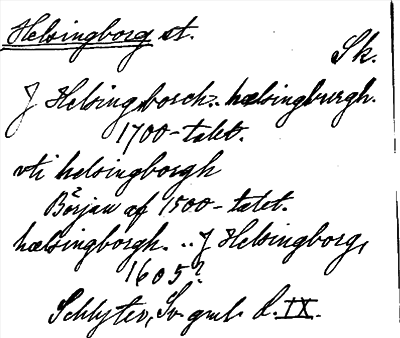 Helsingborg st.
Sk.
J Helsingborch:. hælsingburgh.
1700-talet.
vti helsingborgh
Början af 1500-talet.
hælsingborgh. .. J Helsingborg,
1605?
Schlyter, Sv. gml. d. IX.